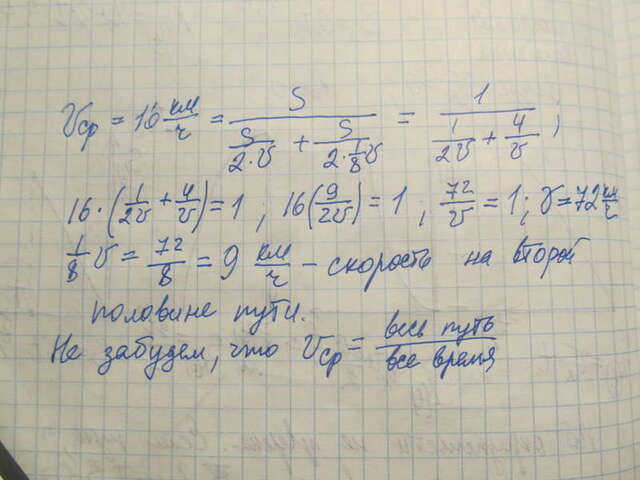 Vср = 16 км/ч = S / (S/(2·v) + S/(2·1/8v)) = 1 / (1/2v + 4/v) ;
16·(1/2v + 4/v) = 1 ; 16(9/2v) = 1 ; 72/v = 1 ; v = 72 км/ч
1/8 v = 72/8 = 9 км/ч – скорость на второй
половине пути.
Не забудем, что Vср = весь путь / все время